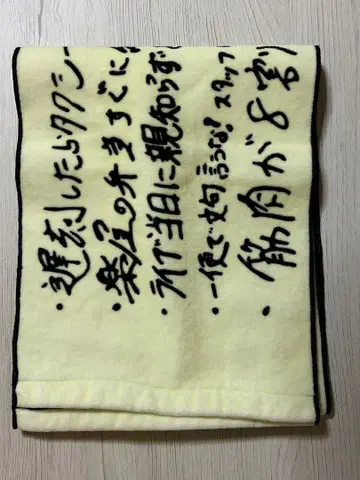 ・遅刻したらタクシー
・楽屋の弁当すぐに
・ライブ当日に親知らず
・一便で文句言うな！スタッフ
・筋肉が8割